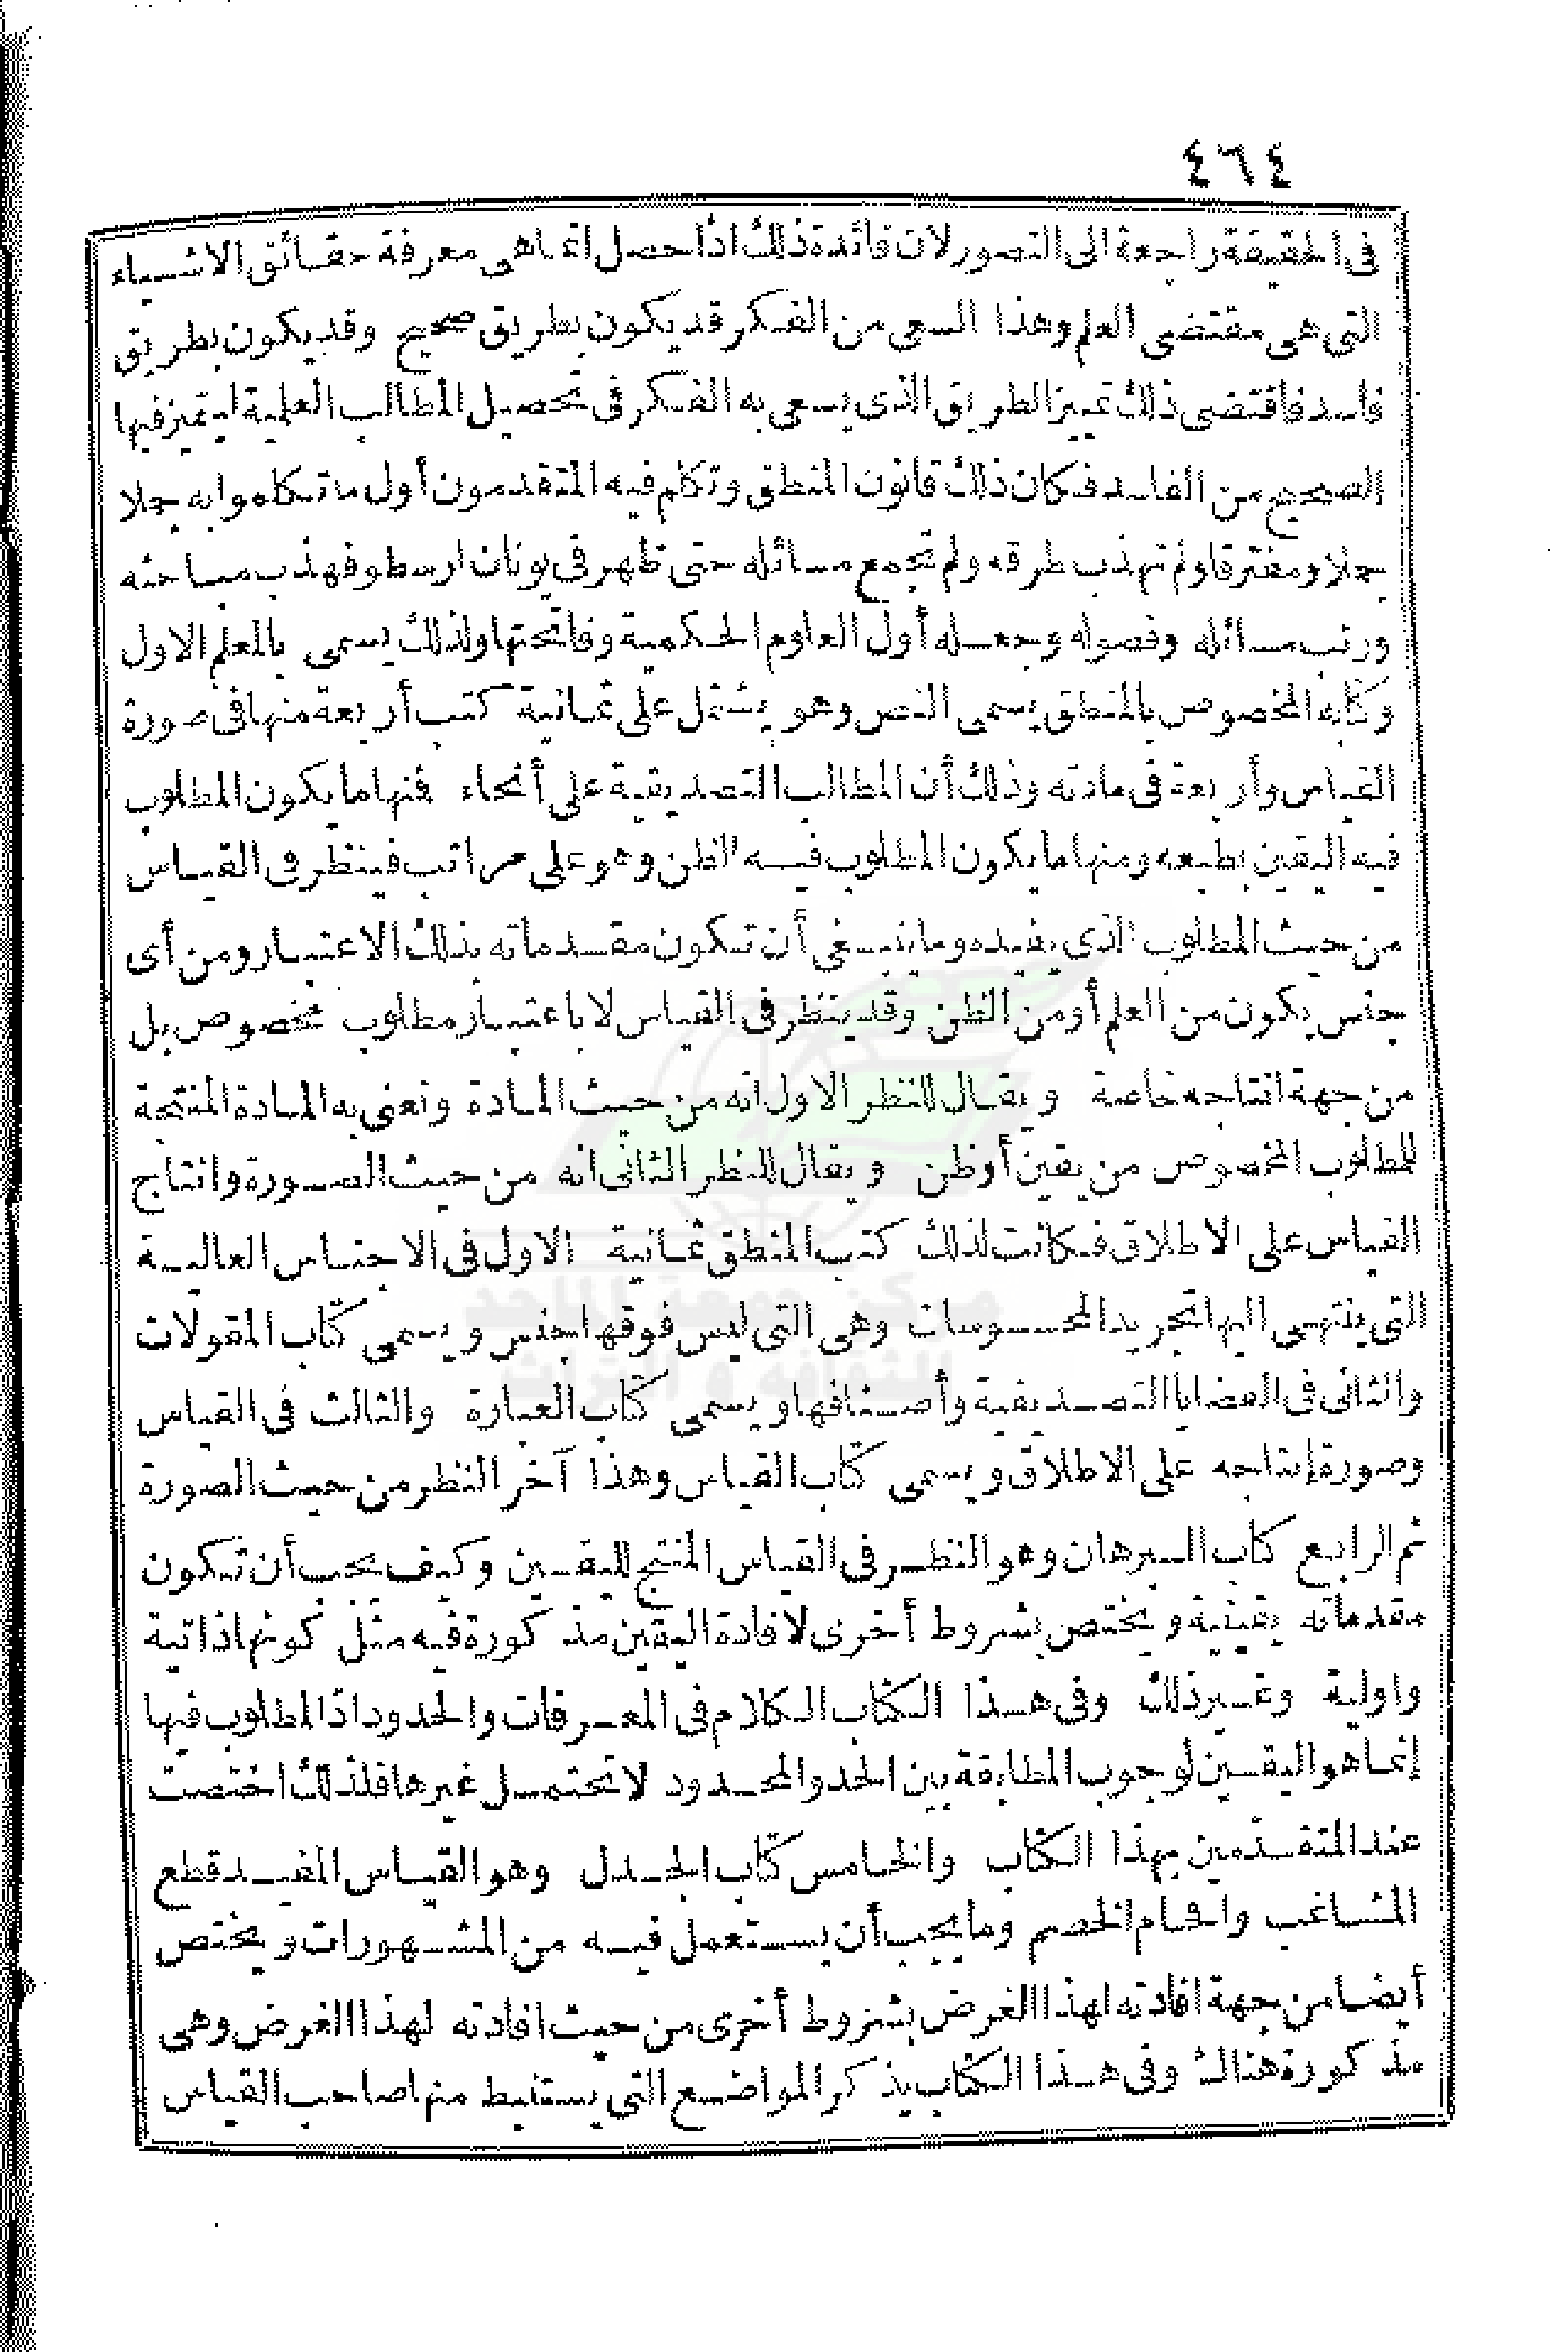 ٤٦٤
فى الحقيقة راجعة الى التصور لان فائدة ذلك اذا حصل انما هى معرفة حقائق الاشياء
التى هى مقتضى العلم وهذا السعى من الفكر قد يكون بطريق صحيح وقد يكون بطريق
فاسد فاقتضى ذلك تمييز الطريق الذى يسعى به الفكر فى تحصيل المطالب العلمية ليتميز فيها
الصحيح من الفاسد فكان ذلك قانون المنطق وتكلم فيه المتقدمون أول ما تكلموا به جملا
جملا ومفترقا ولم تهذب طرقه ولم تجمع مسائله حتى ظهر فى يونان ارسطو فهذب مباحثه
ورتب مسائله وفصوله وجعله أول العلوم الحكمية وفاتحتها ولذلك يسمى بالمعلم الاول
وكتابه المخصوص بالمنطق يسمى النص وهو يشتمل على ثمانية كتب أربعة منها فى صورة
القياس وأربعة فى مادته وذلك أن المطالب التصديقية على أنحاء فمنها ما يكون المطلوب
فيه اليقين بطبعه ومنها ما يكون المطلوب فيه الظن وهو على مراتب فينظر فى القياس
من حيث المطلوب الذى يفيده وما ينبغى أن تكون مقدماته بذلك الاعتبار ومن أى
جنس يكون من العلم أو من الظن وقد ينظر فى القياس لا باعتبار مطلوب مخصوص بل
من جهة انتاجه خاصة ويقال للنظر الاول انه من حيث المادة ونعنى به المادة المنتجة
للمطلوب المخصوص من يقين أو ظن ويقال للنظر الثانى انه من حيث الصورة وانتاج
القياس على الاطلاق فكانت لذلك كتب المنطق ثمانية الاول فى الاجناس العالية
التى ينتهى اليها تجريد المحسوسات وهى التى ليس فوقها جنس ويسمى كتاب المقولات
والثانى فى القضايا التصديقية وأصنافها ويسمى كتاب العبارة والثالث فى القياس
وصورة إنتاجه على الاطلاق ويسمى كتاب القياس وهذا آخر النظر من حيث الصورة
ثم الرابع كتاب البرهان وهو النظر فى القياس المنتج لليقين وكيف يجب أن تكون
مقدماته يقينية ويختص بشروط أخرى لافادة اليقين مذكورة فيه مثل كونها ذاتية
واولية وغير ذلك وفى هذا الكتاب الكلام فى المعرفات والحدود اذ المطلوب فيها
إنما هو اليقين لوجوب المطابقة بين الحد والمحدود لا تحتمل غيرها فلذلك اختصت
عند المتقدمين بهذا الكتاب والخامس كتاب الجدل وهو القياس المفيد قطع
المشاغب وافحام الخصم وما يجب أن يستعمل فيه من المشهورات ويختص
أيضا من جهة افادته لهذا الغرض بشروط أخرى من حيث افادته لهذا الغرض وهى
مذكورة هناك وفى هذا الكتاب يذكر المواضع التى يستنبط منها صاحب القياس
مركز جمعة الماجد
للثقافة و التراث